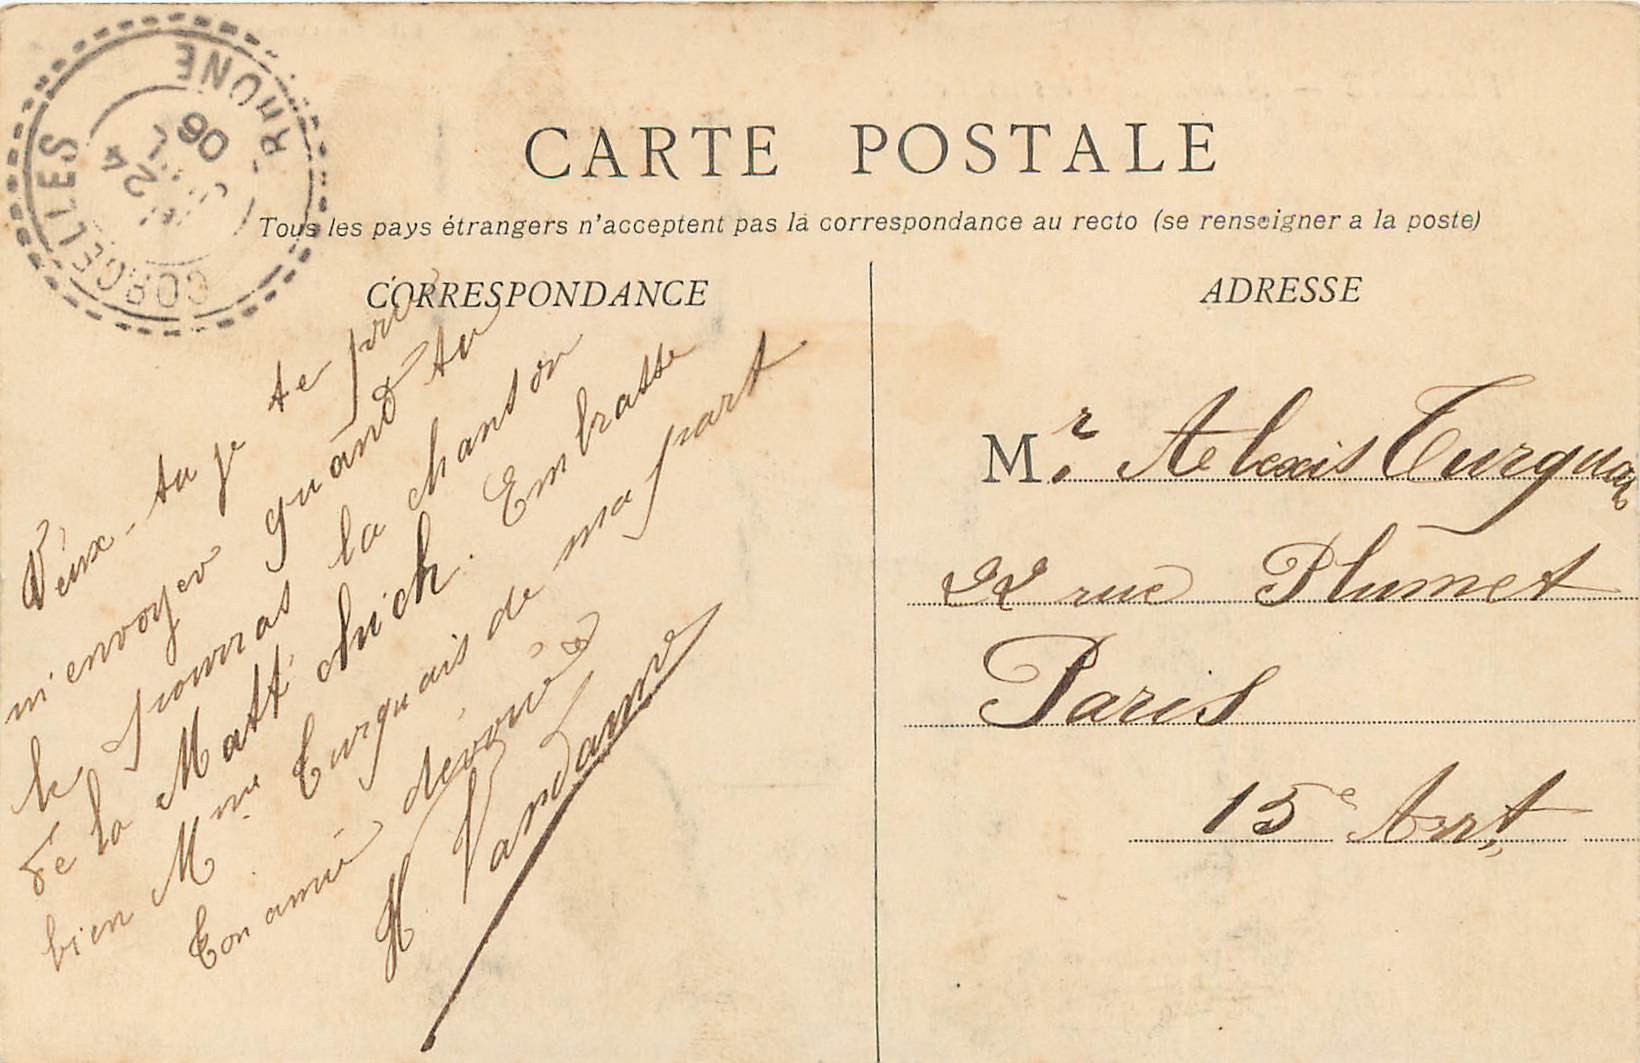 CORCELLES
RHÔNE
24
06
CARTE POSTALE
Tous les pays étrangers n'acceptent pas la correspondance au recto (se renseigner a la poste)
CORRESPONDANCE
Veux-tu je te prie
m'envoyer quand tu
le pourras la chanson
de la Mattchich. Embrasse
bien Mme Turquais de ma part
Ton ami dévoué
H Vandame
ADRESSE
Mr. Alexis Turquais
22 rue Plumet
Paris
15e Arrt,